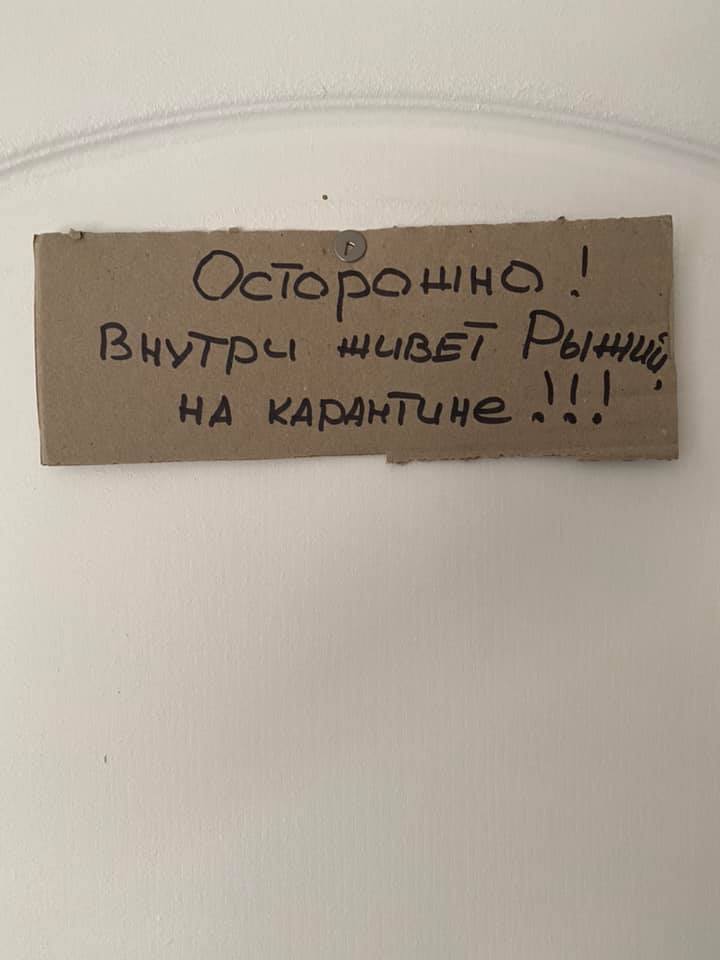 Осторожно!
Внутри живет Рыжий
на карантине!!!